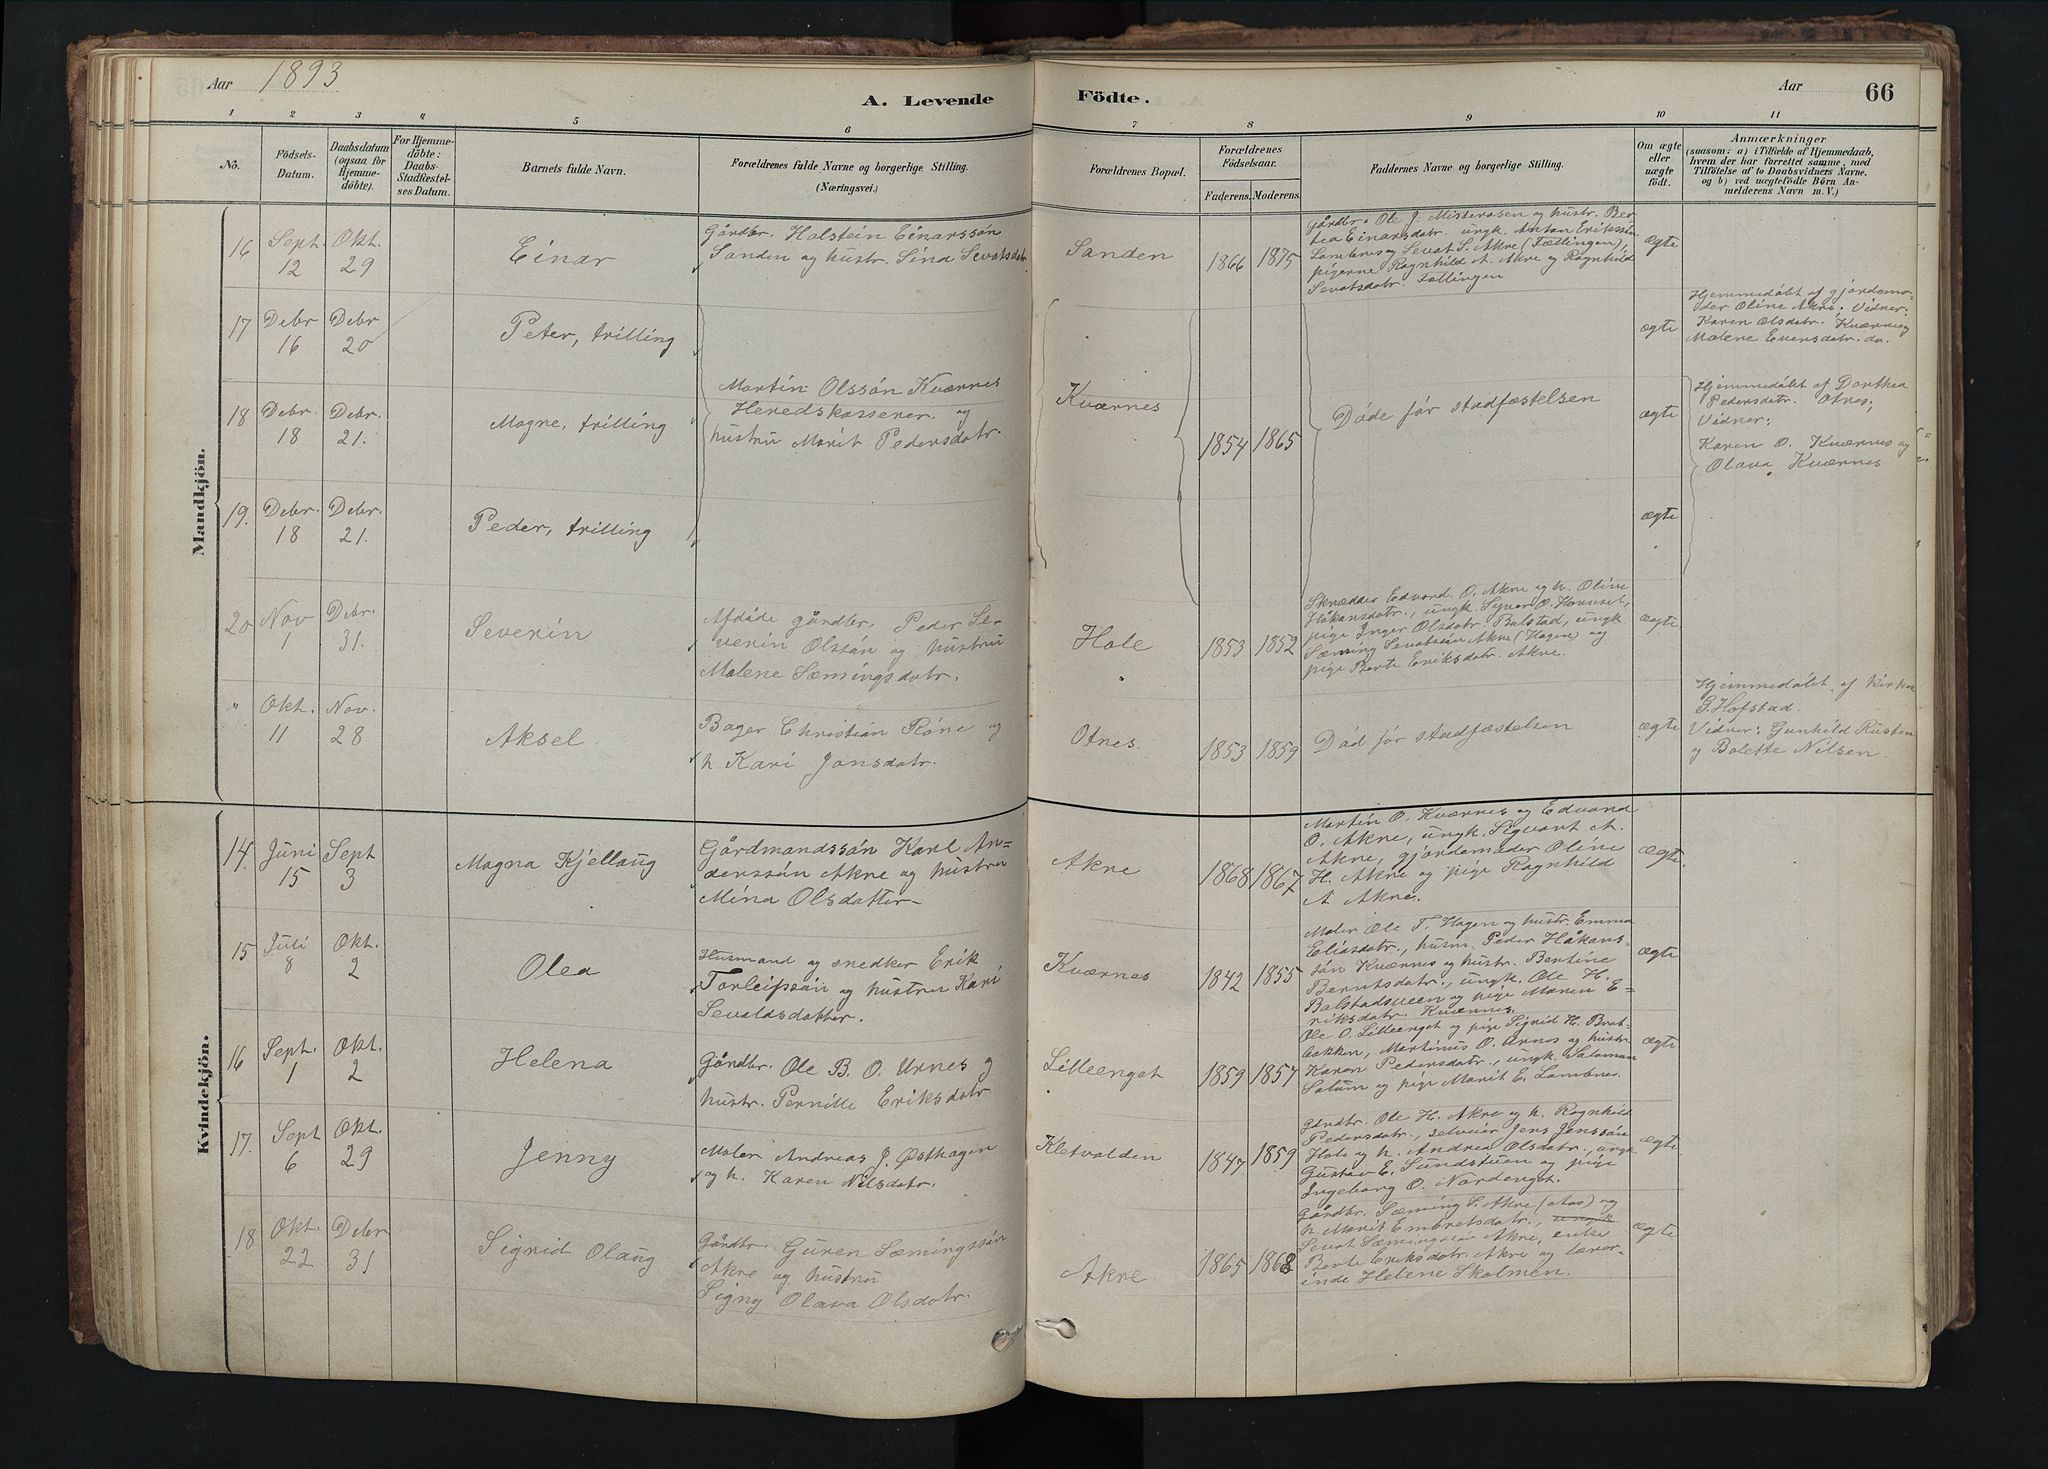 Aar 1893
A. Levende Födte.
Aar
66
1 2 3 4 5 6 7 8 9 10 11
No.
Födsels-Datum.
Daabsdatum (ogsaa for Hjemme-döbte).
For Hjemme-döbte: Daabs-Stadfæstel-ses Datum.
Barnets fulde Navn.
Forældrenes fulde Navne og borgerlige Stilling. (Næringsvei.)
Forældrenes Bopæl.
Forældrenes Födselsaar.
Faderens. Moderens.
Faddernes Navne og borgerlige Stilling.
Om ægte eller uægte födt.
Anmærkninger
(saasom: a) i Tilfælde af Hjemmedaab,
hvem der har forrettet samme, med
Tilföielse af to Daabsvidners Navne.
og b) ved uægtefödte Börn An-
melderens Navn m. V.)
Mandkjön.
16 Sept. 12 Okt. 29
Einar
Gårdbr. Halstein Einarssön
Sanden og hustr. Sina Sevatsdatr.
Sanden
1866 1875
Gårdbr. Ole J. Misterosen og hustr. Ber-
tea Einarsdatr. ungk. Anton Erikssen
Lombnes og Sevat S. Akre (Fællingen),
pigerne Ragnhild A. Akre og Ragnhild
Sevatsdatr. Fællingen
ægte
17 Debr 16 Debr 20
Peter, trilling
ægte
Hjemmedöbt af gjordemo-
der Oline Akre; Vidner:
Karen Olsdatr. Kværnes og
Malene Evensdatr. do.
18 Debr. 18 Debr. 21.
Magne, trilling
Martin Olssön Kværnes
Heredskasserer og
hustru Marit Pedersdatr.
Kværnes
1854 1865
Döde för stadfæstelsen
ægte
Hjemmedöbt af Dorthea
Pedersdatr. Otnes;
Vidner:
Karen O. Kværnes og
Olava Kværnes
19. Debr. 18 Debr. 21.
Peder, trilling
ægte
20 Nov 1 Debr. 31.
Severin
Afdöde gårdbr. Peder Se-
verin Olssön og hustru
Malene Sæmingsdatr.
Hole
1853 1852
Skrædder Edvard O. Akre og h. Oline
Håkansdatr., ungk. Sivar O. Hornset,
pige Inger Olsdatr. Balstad, ungk.
Sæming Sevatssön Akre (Hagen) og
pige Berte Eriksdatr. Akre.
ægte
" Okt. 11 Nov. 28
Aksel.
Bager Christian Röne og
h. Kari Jonsdatr.
Otnes.
1853 1859
Död för stadfæstelsen
ægte
Hjemmedöbt af
P. Hofstad.
Vidner: Gunhild Rusten
og Bolette Nilsen.
Kvindekjön.
14. Juni 15 Sept 3
Magna Kjellaug
Gårdmandssön Karl An-
derssön Akre og hustru
Mina Olsdatter
Akre
1868 1867
Martin O. Kværnes og Edvard
O. Akre, ungk. Sigvart A.
Akre, gjordemoder Oline
H. Akre og pige Ragnhild
A Akre.
ægte.
15 Juli 8 Okt. 2
Olea
Husmand og snedker Erik
Torleifssön og hustru Kari
Sevaldsdatter.
Kværnes
1842 1855
Maler Ole T. Hagen og hustr. Emma
Eliasdatr., husm. Peder Håkans-
sön Kværnes og hustr. Bertine
Berntsdatr., ungk. Ole H.
Balstadsveen og pige Maren E-
riksdatr. Kværnes.
ægte
16 Sept. 1 Okt. 2
Helena
Gårdbr. Ole B. O. Urnes og
hustr. Pernille Eriksdatr
Lilleenget
1859 1857
Ole O. Lilleenget og pige Sigrid H. Brat-
bakken, Martinus O. Urnes og hustr
Karen Pedersdatr., ungk. Salomon
Solum og pige Marit E. Lombnes.
ægte
17. Sept 6 Okt. 29
Jenny
Maler Andreas J. Østhagen
og h. Karen Nilsdatr.
Kletvolden
1847 1859
Gårdbr. Ole H. Akre og h. Ragnhild
Pedersdatr., selveier Jens Jenssön
Hole og h. Andrea Olsdatr., ungk
Gustav E. Sundstuen og pige
Ingeborg O. Nordenget.
ægte
18 Okt. 22 Debr 31
Sigrid Olaug
Gårdbr. Guren Sæmingssön
Akre og hustru
Signy Olava Olsdatr.
Akre
1865 1868
Gårdbr. Sæming S. Akre (Aas) og
h. Marit Embretsdatr., ungk
Sevat Sæmingssön Akre, enke
Berte Eriksdatr. Akre og lærer-
inde Helene Skolmen.
ægte